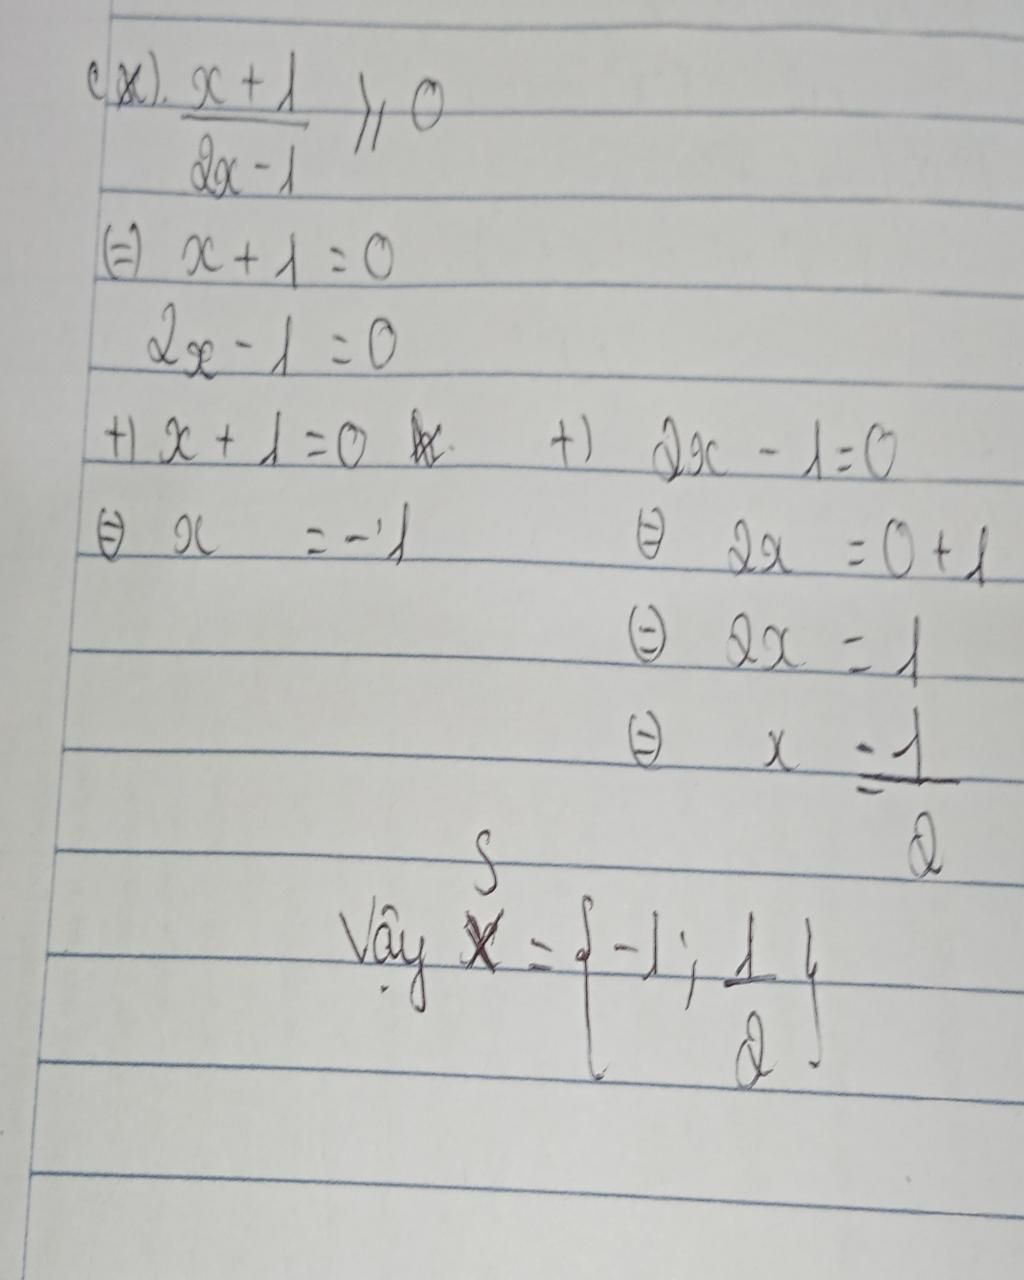 c(x). x + 1 / 2x - 1 ⩾ 0
(=) x + 1 = 0
2x - 1 = 0
+) x + 1 = 0 +) 2x - 1 = 0
(=) x = -1 (=) 2x = 0 + 1
(=) 2x = 1
(=) x = 1/2
S
Vậy = { -1 ; 1/2 }